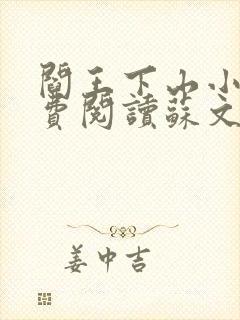 閻王下山小
費閱讀蘇文
姜中吉